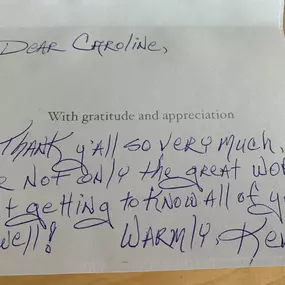 Dear Caroline,
With gratitude and appreciation
Thank y'all so very much,
not only the great wor
t getting to know all of y
well! Warmly, Ke